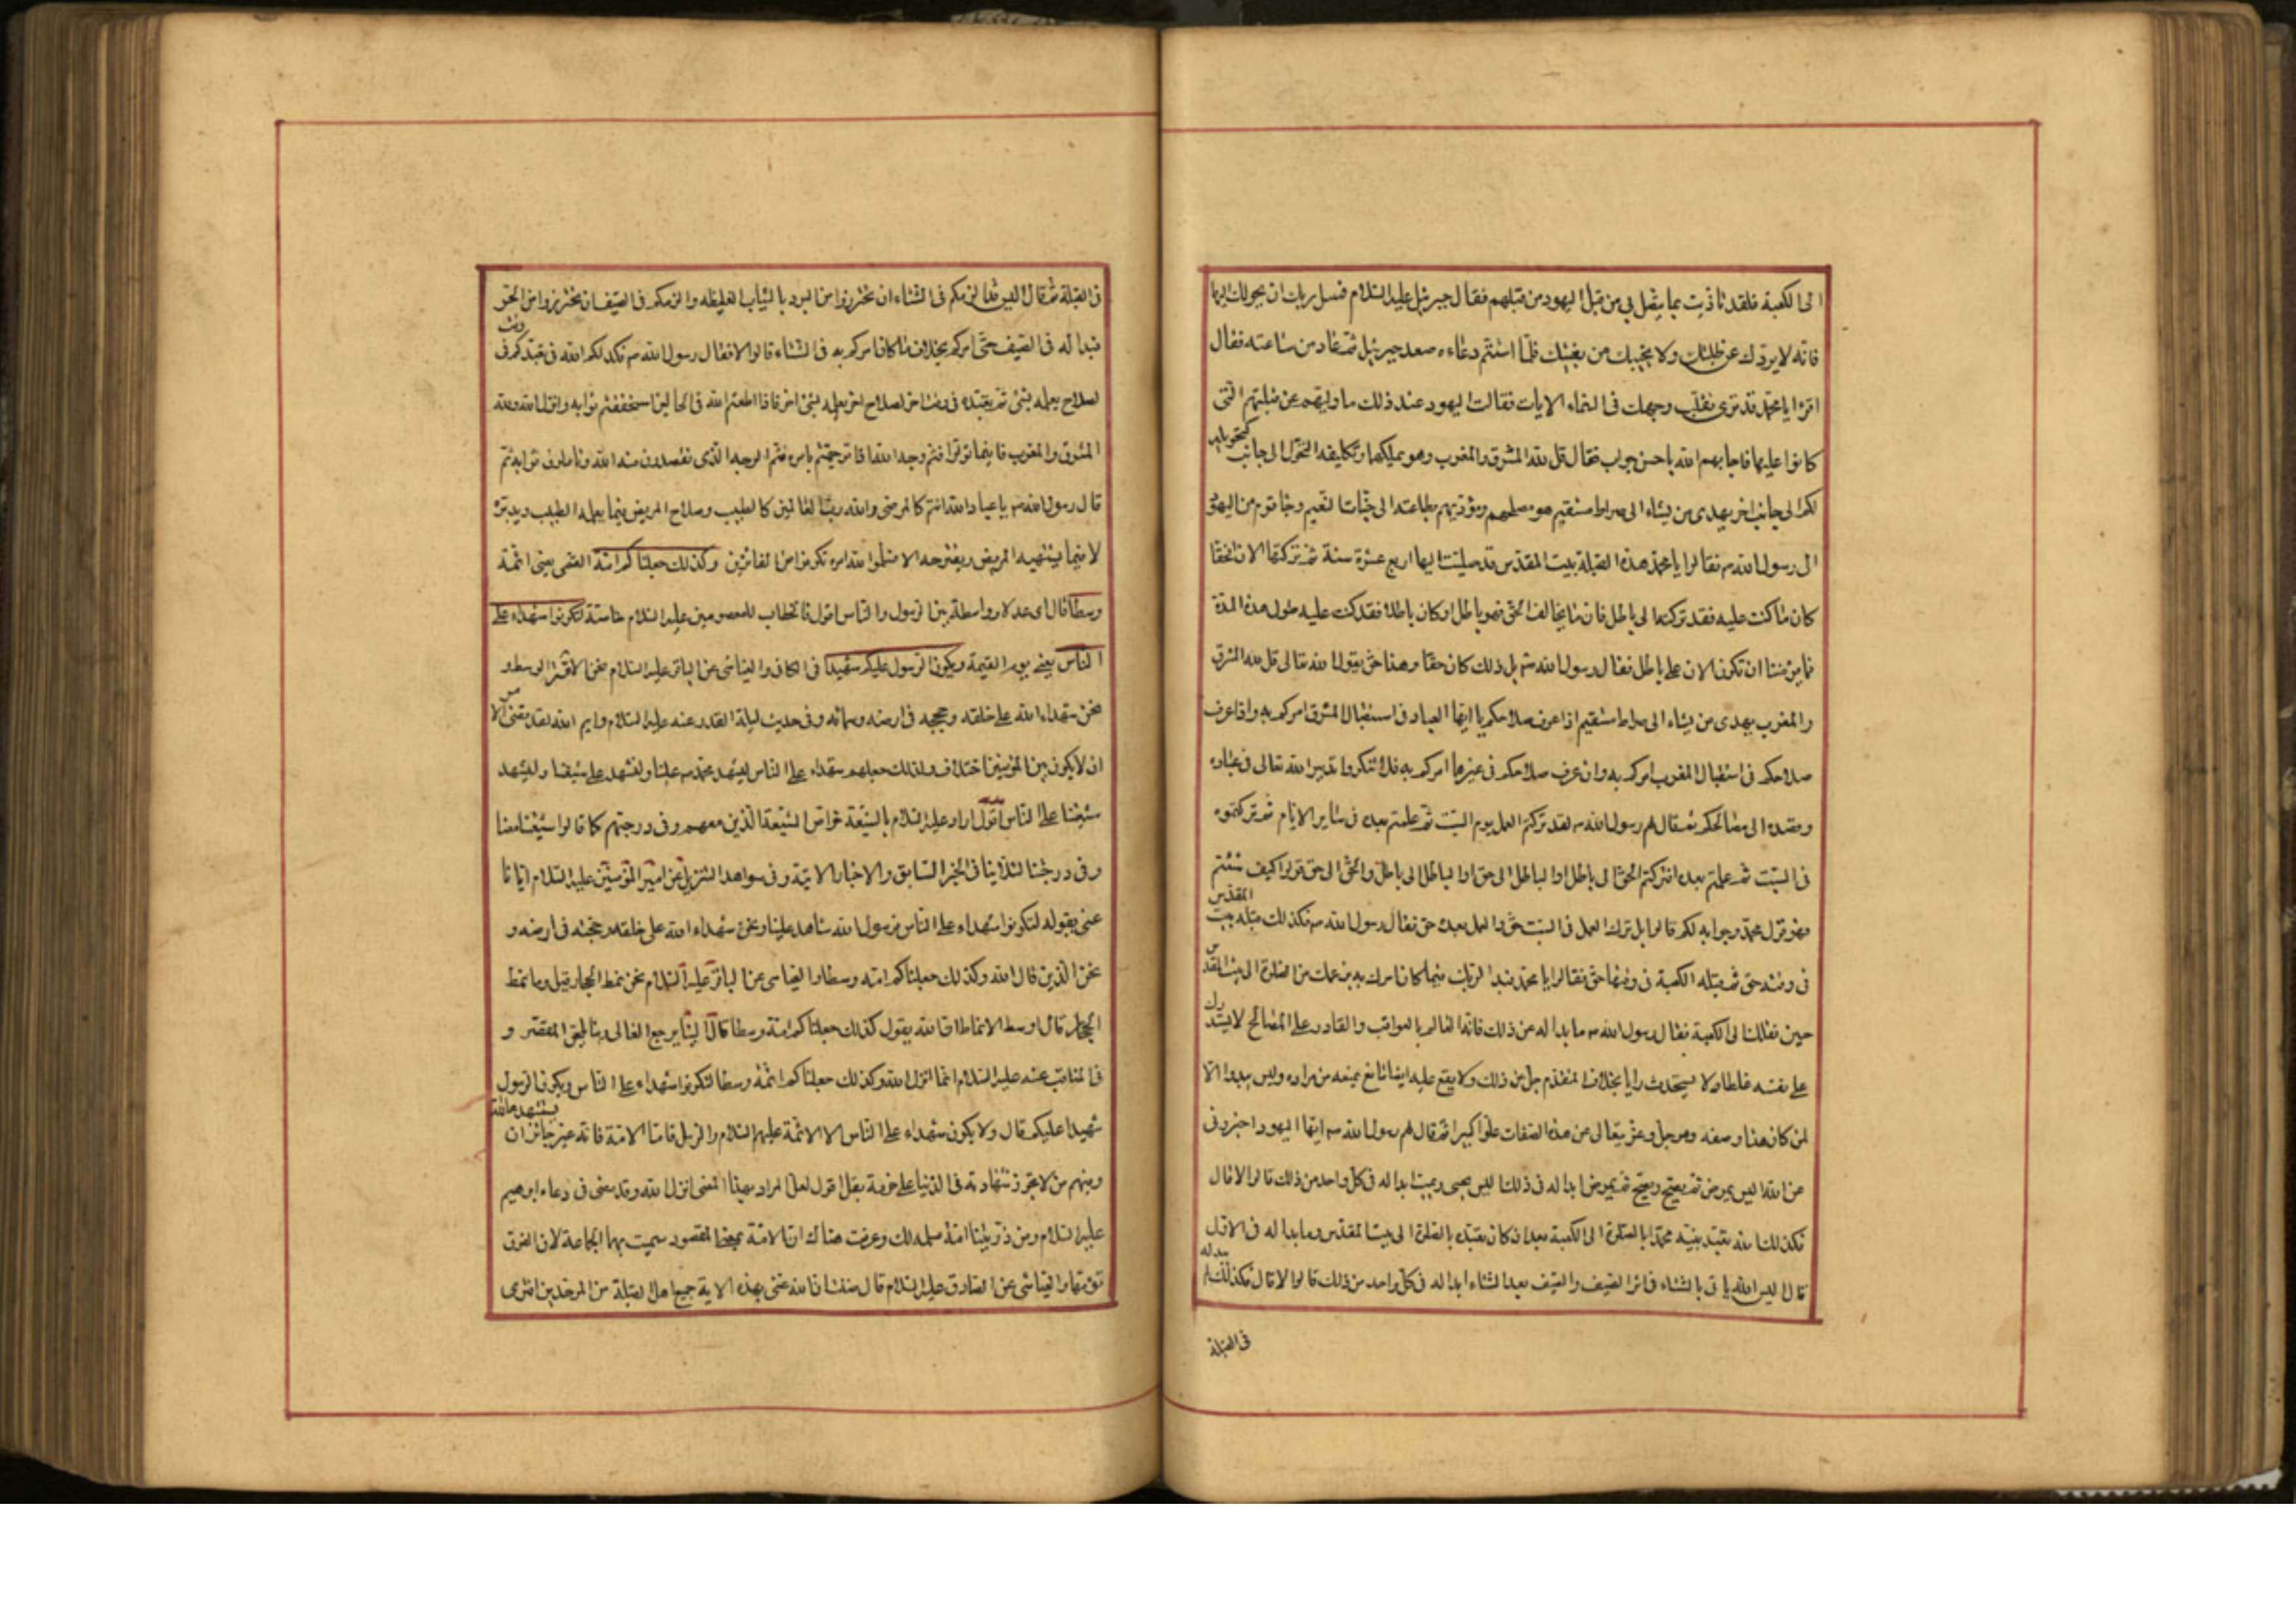 الى الكعبة فلقد تاذيت بما يتصل بي من قبل اليهود من قبلهم فقال جبرئيل عليه السلام فسل ربك ان يحولك اليها
فانه لا يردك عن طلبتك ولا يخيبك من بغيتك فلما استتم دعاءه صعد جبرئيل ثم عاد من ساعته فقال
اقرا يا محمد قد نرى تقلب وجهك في السماء الايات فقالت اليهود عند ذلك ما وليهم عن قبلتهم التي
كانوا عليها فاجابهم الله باحسن جواب فقال قل لله المشرق والمغرب وهو يملكهما وتكليفه التحول الى جانب كتحويله
لكم الى جانب اخر يهدي من يشاء الى صراط مستقيم هو مصلحهم ومؤديهم بطاعته الى جنات النعيم وجا قوم من اليهود
الى رسول الله ص فقالوا يا محمد هذه القبلة بيت المقدس قد صليت اليها اربع عشرة سنة ثم تركتها الان افحقا
كان ما كنت عليه فقد تركته الى باطل فان ما يخالف الحق فهو باطل او كان باطلا فقد كنت عليه طول هذه المدة
فما يؤمننا ان تكون الان على باطل فقال رسول الله ص بل ذلك كان حقا وهذا حق يقول الله تعالى قل لله المشرق
والمغرب يهدي من يشاء الى صراط مستقيم اذا عرف صلاحكم يا ايها العباد في استقبال المشرق امركم به واذا عرف
صلاحكم في استقبال المغرب امركم به وان عرف صلاحكم في غيرهما امركم به فلا تنكروا تدبير الله تعالى في عباده
وقصده الى مصالحكم ثم قال لهم رسول الله ص لقد تركتم العمل يوم السبت ثم عملتم بعده في سائر الايام ثم تركتموه
في السبت ثم عملتم بعده افتركتم الحق الى باطل او الباطل الى حق او الباطل الى باطل والحق الى حق قولوا كيف شئتم
فهو قول محمد وجوابه لكم قالوا بل ترك العمل في السبت حق والعمل بعده حق فقال رسول الله ص فكذلك قبلة بيت المقدس
في وقته حق ثم قبلة الكعبة في وقتها حق فقالوا يا محمد فبدا لربك فيما كان امرك به بزعمك من الصلوة الى بيت المقدس
حين نقلك الى الكعبة فقال رسول الله ص ما بدا له عن ذلك فانه العالم بالعواقب والقادر على المصالح لا يستدرك
على نفسه غلطا ولا يستحدث رايا بخلاف المتقدم جل عن ذلك ولا يقع عليه ايضا مانع يمنعه من مراده وليس يبدوا الا
لمن كان هذا وصفه وهو جل وعز يتعالى عن هذه الصفات علوا كبيرا ثم قال لهم رسول الله ص ايها اليهود اخبروني
عن الله اليس يمرض ثم يصح ويصح ثم يمرض ابدا له في ذلك اليس يحيى ويميت ابدا له في كل واحد من ذلك قالوا لا قال
فكذلك الله تعبد نبيه محمدا بالصلوة الى الكعبة بعد ان كان تعبده بالصلوة الى بيت المقدس وما بدا له في الاول
قال اليس الله ياتي بالشتاء في اثر الصيف والصيف بعد الشتاء ابدا له في كل واحد من ذلك قالوا لا قال فكذلك لم يبد له
في القبلة
في القبلة ثم قال اليس قد الزمكم في الشتاء ان تحترزوا من البرد بالثياب الغليظة والزمكم في الصيف ان تحترزوا من الحر
فبدا له في الصيف حتى امركم بخلاف ما كان امركم به في الشتاء قالوا لا فقال رسول الله ص فكذلكم الله في تعبدكم في وقت
لصلاح يعلمه بشئ ثم تعبده في وقت اخر لصلاح اخر يعلمه بشئ اخر فاذا اطعتم الله في الحالين استحققتم ثوابه وانزل الله ولله
المشرق والمغرب فاينما تولوا فثم وجه الله اذا توجهتم بامره فثم الوجه الذي تقصدون منه الله وتاملون ثوابه ثم
قال رسول الله ص يا عباد الله انتم كالمرضى والله رب العالمين كالطبيب وصلاح المريض فيما يعلمه الطبيب ويدبره
لا فيما يشتهيه المريض ويقترحه الا فسلموا لله امره تكونوا من الفائزين وكذلك جعلناكم امة القمي يعني ائمة
وسطا قال اى عدلا وواسطة بين الرسول والناس اقول فالخطاب للمعصومين عليهم السلام خاصة لتكونوا شهداء على
الناس يعني يوم القيمة ويكون الرسول عليكم شهيدا في الكافي والعياشي عن الباقر عليه السلام نحن الامة الوسط و
نحن شهداء الله على خلقه وحججه في ارضه وسمائه وفي حديث ليلة القدر عنه عليه السلام وايم الله لقد قضى الامر
ان لا يكون بين المؤمنين اختلاف ولذلك جعلهم شهداء على الناس ليشهد محمد ص علينا ولنشهد على شيعتنا وليشهد
شيعتنا على الناس اقول اراد عليه السلام بالشيعة خواص الشيعة الذين معهم وفي درجتهم كما قالوا شيعتنا معنا
وفي درجتنا لئلا ينافي الخبر السابق والاخبار الاتية وفي شواهد التنزيل عن امير المؤمنين عليه السلام ايانا
عنى بقوله لتكونوا شهداء على الناس فرسول الله شاهد علينا ونحن شهداء الله على خلقه وحجته في ارضه و
نحن الذين قال الله وكذلك جعلناكم امة وسطا والعياشي عن الباقر عليه السلام نحن نمط الحجاز قيل وما نمط
الحجاز قال اوسط الانماط ان الله يقول كذلك جعلناكم امة وسطا قال الينا يرجع الغالي وبنا يلحق المقصر و
في المناقب عنه عليه السلام انما انزل الله وكذلك جعلناكم ائمة وسطا لتكونوا شهداء على الناس ويكون الرسول
شهيدا عليكم قال ولا يكون شهداء على الناس الا الائمة عليهم السلام والرسل فاما الامة فانه غير جائز ان يستشهدها الله
وفيهم من لا تجوز شهادته في الدنيا على حزمة بقل اقول لعل المراد بهذا المعنى انزل الله وقد مضى في دعاء ابرهيم
عليه السلام ومن ذريتنا امة مسلمة لك وعرفت هناك ان الامة بمعنى المقصود سميت بها الجماعة لان الفرق
تؤمها والعياشي عن الصادق عليه السلام قال ظننت ان الله عنى بهذه الاية جميع اهل القبلة من الموحدين افترى